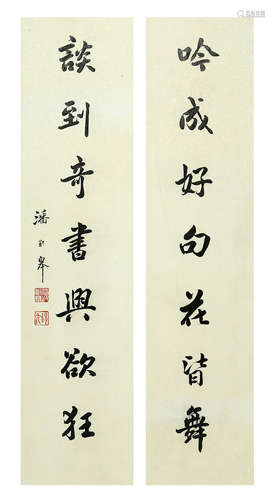 吟成好句花皆舞
談到奇書興欲狂
潘齡皋